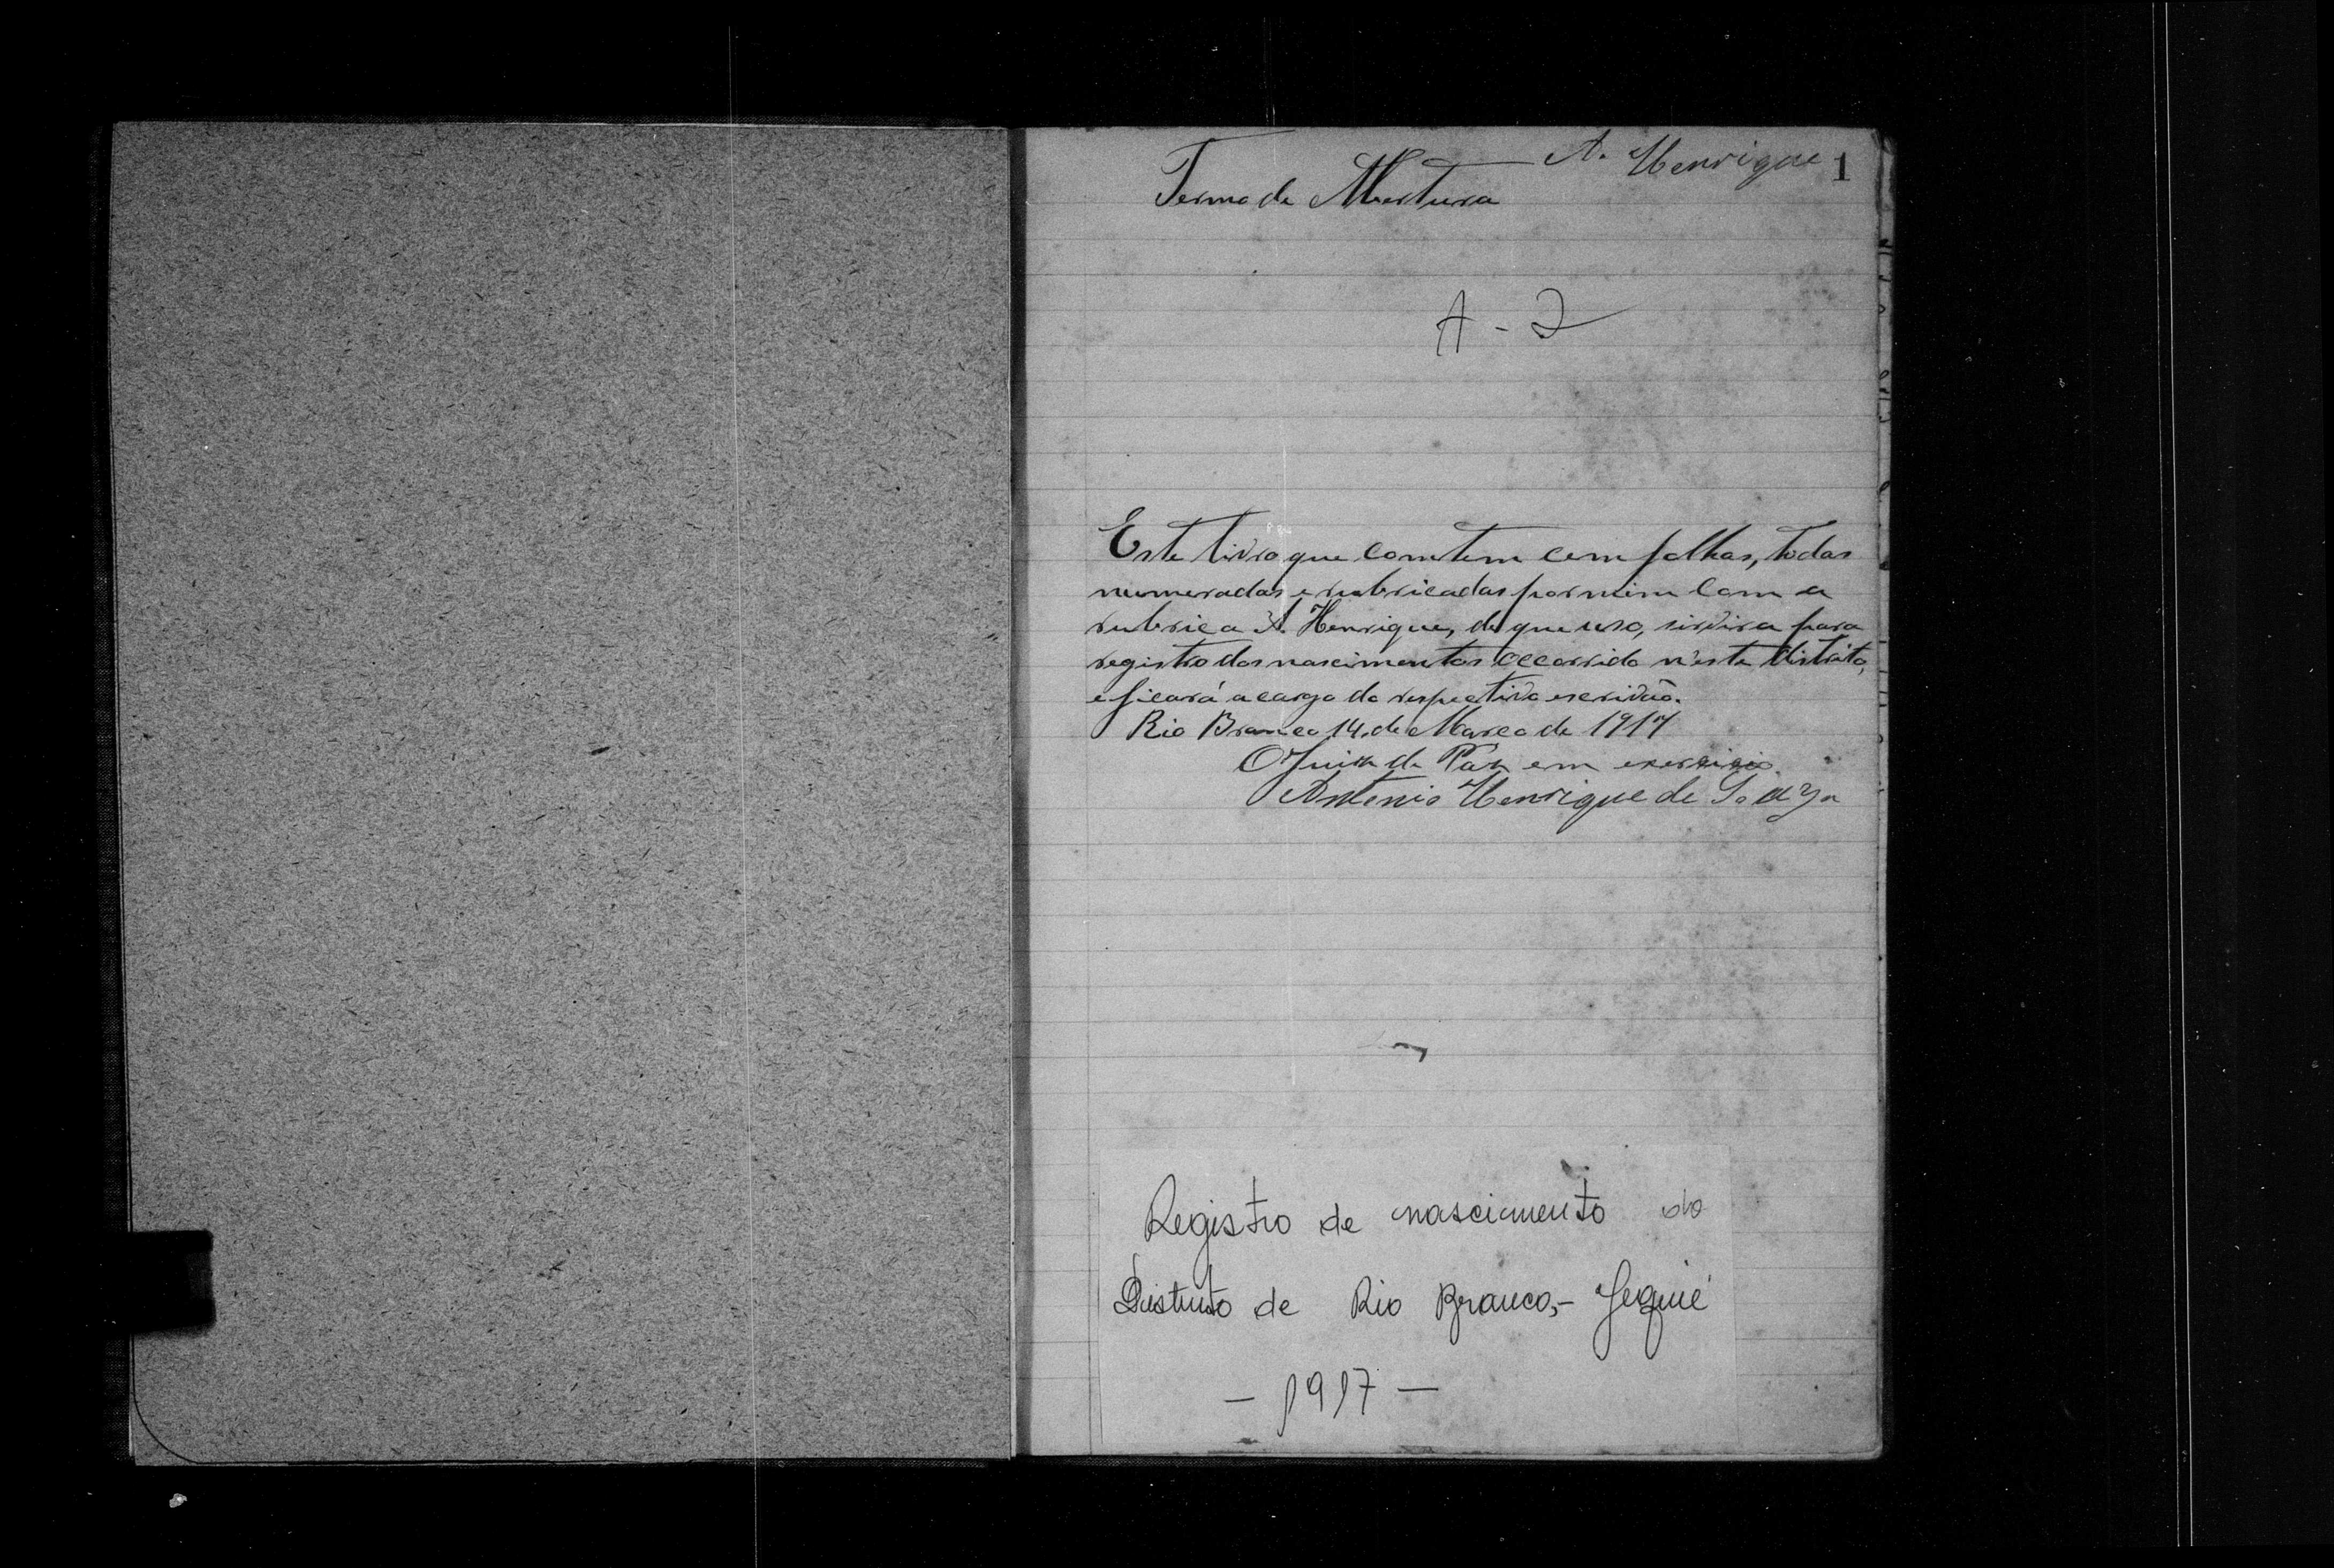 A. Henrique 1
Termo de Abertura
A - 2
Este livro que comtem cem folhas, todas
numeradas e rubricadas por mim com a
rubrica A. Henrique, de que uso, sirvira para
registro dos nascimentos occorrido n'este distrito,
e ficará a cargo do respectivo escrivão.
Rio Branco 14, de Março de 1917
O Juiz de Paz em exercicio.
Antonio Henrique de Souza
Registro de nascimento do
Distrito de Rio Branco, - Jequié
- 1917 -